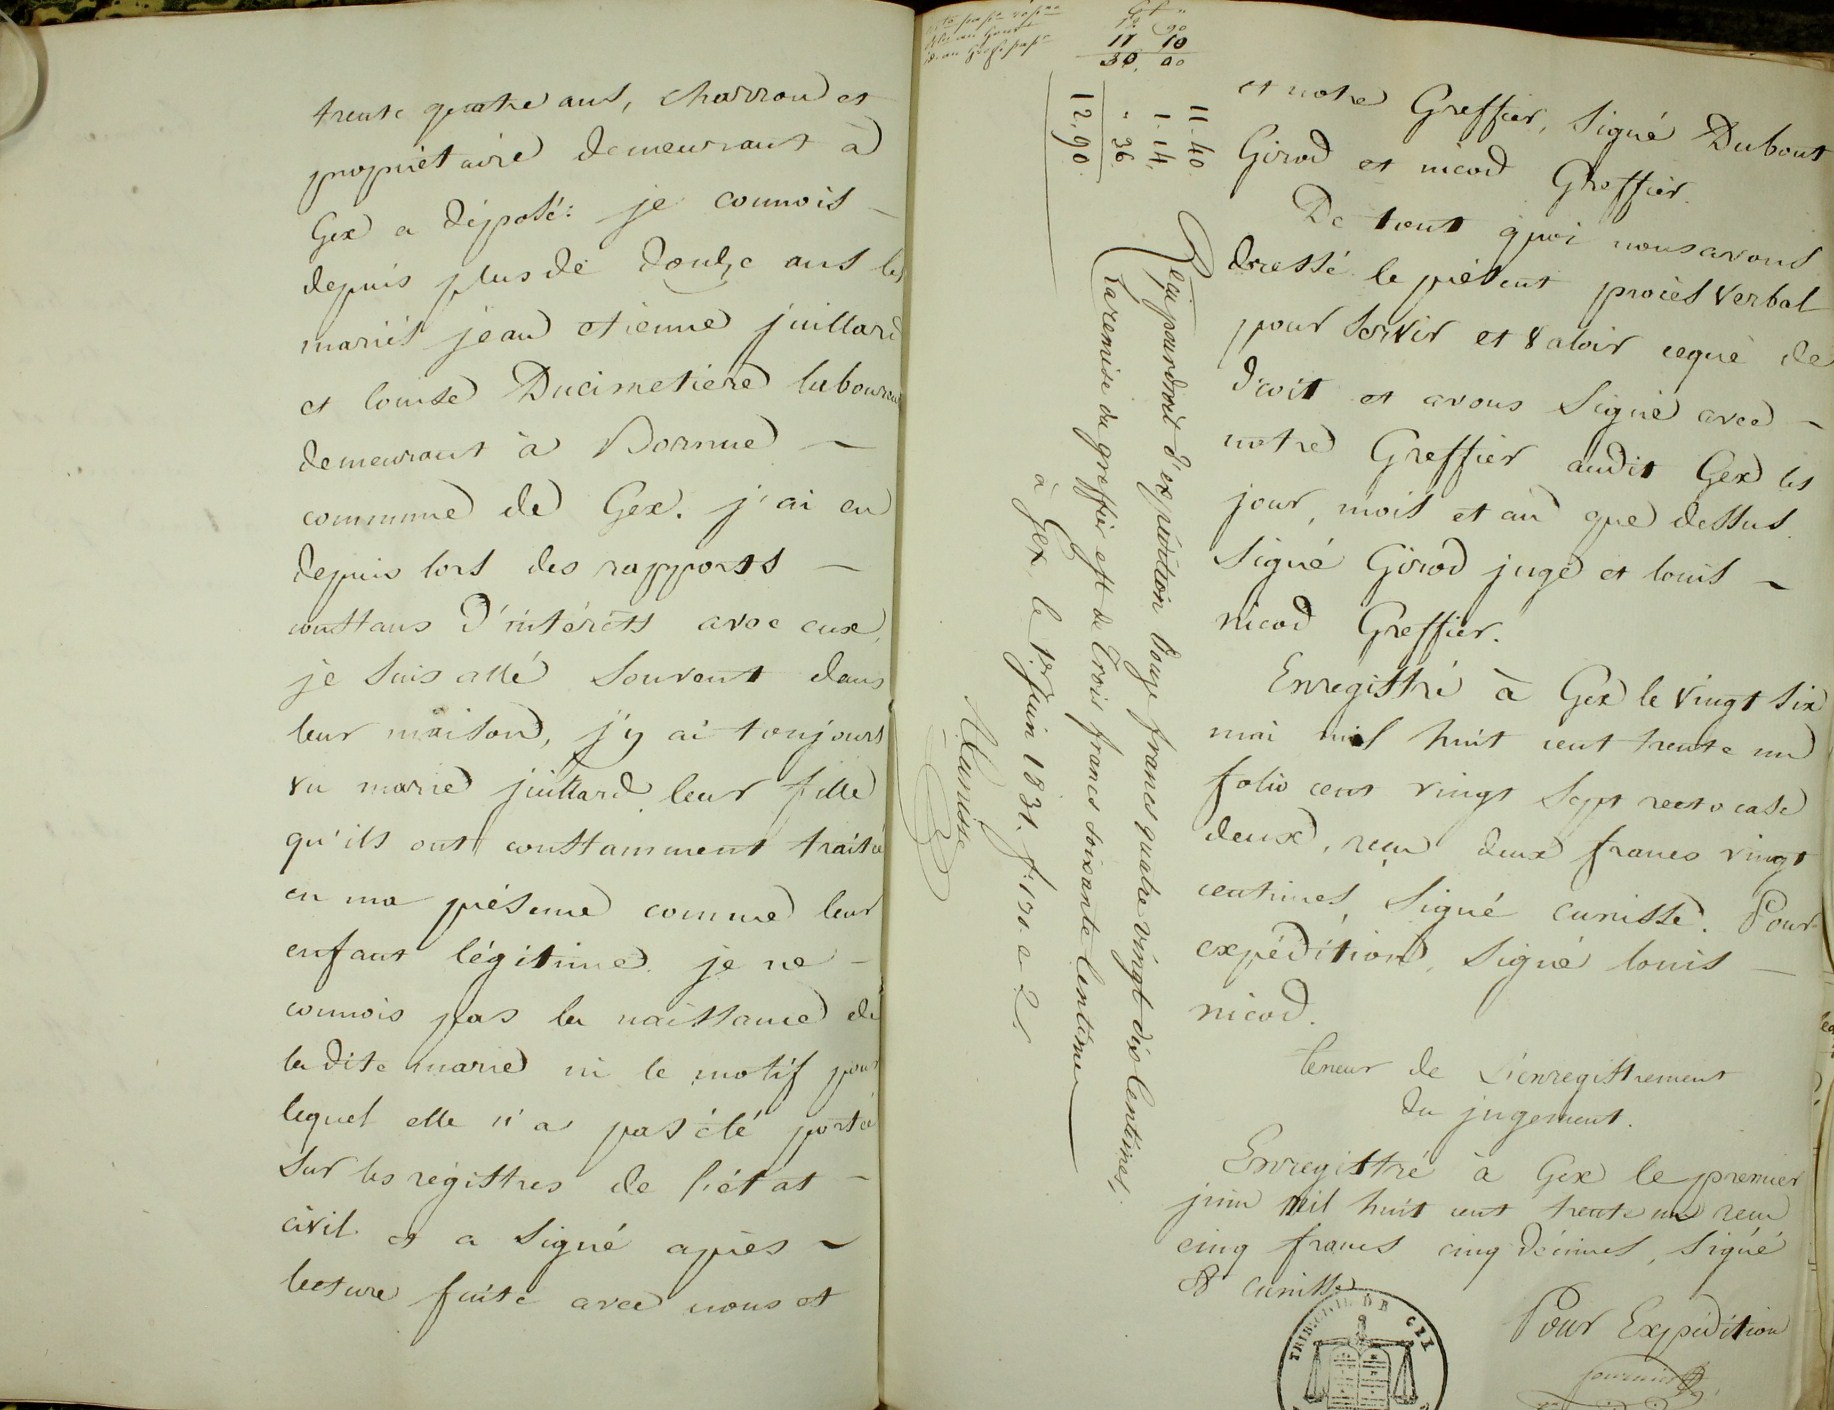 trente quatre ans, charron et
propriétaire demeurant à
Gex a déposé: je connois
depuis plus de douze ans les
mariés jean etienne juillard
et louise Ducimetiere laboureurs
demeurant à
commune de Gex. j'ai eu
depuis lors des rapports
constans d'intérêts avec eux,
je suis allé souvent dans
leur maison, j'y ai toujours
vu marie juillard leur fille
qu'ils ont constamment traité
en ma présence comme leur
enfant légitime. je ne
connois pas la naissance de
la dite marie ni le motif pour
lequel elle n'a pas été porté
sur les régistres de l'état
civil et a signé après
lecture faite avec nous et
11 10
30. 00
11. 40.
1. 14.
" 36.
12, 90.
Reçu pour droit d'expédition Douze francs quatre vingt dix Centimes.
La remise du greffier est de Trois francs soixante Centimes
à Gex, le 1er juin 1831. f° 130. c. 2
Cunisse
et notre Greffier, signé Dubout
Girod et nicod Greffier.
De tout quoi nous avons
dressé le présent procès verbal
pour servir et valoir ceque de
droit et avons signé avec
notre Greffier audit Gex les
jour, mois et an que dessus.
signé Girod juge et louis
nicod Greffier.
Enregistré à Gex le vingt six
mai mil huit cent trente un
folio cent vingt sept recto case
deux, reçu deux francs vingt
centimes signé cunisse. Pour
expédition, signé louis
nicod.
teneur de l'enregistrement
du jugement.
Enregistré à Gex le premier
juin mil huit cent trente un reçu
cinq francs cinq décimes, signé
cunisse
TRIB. CIVIL DE GEX
Pour Expédition